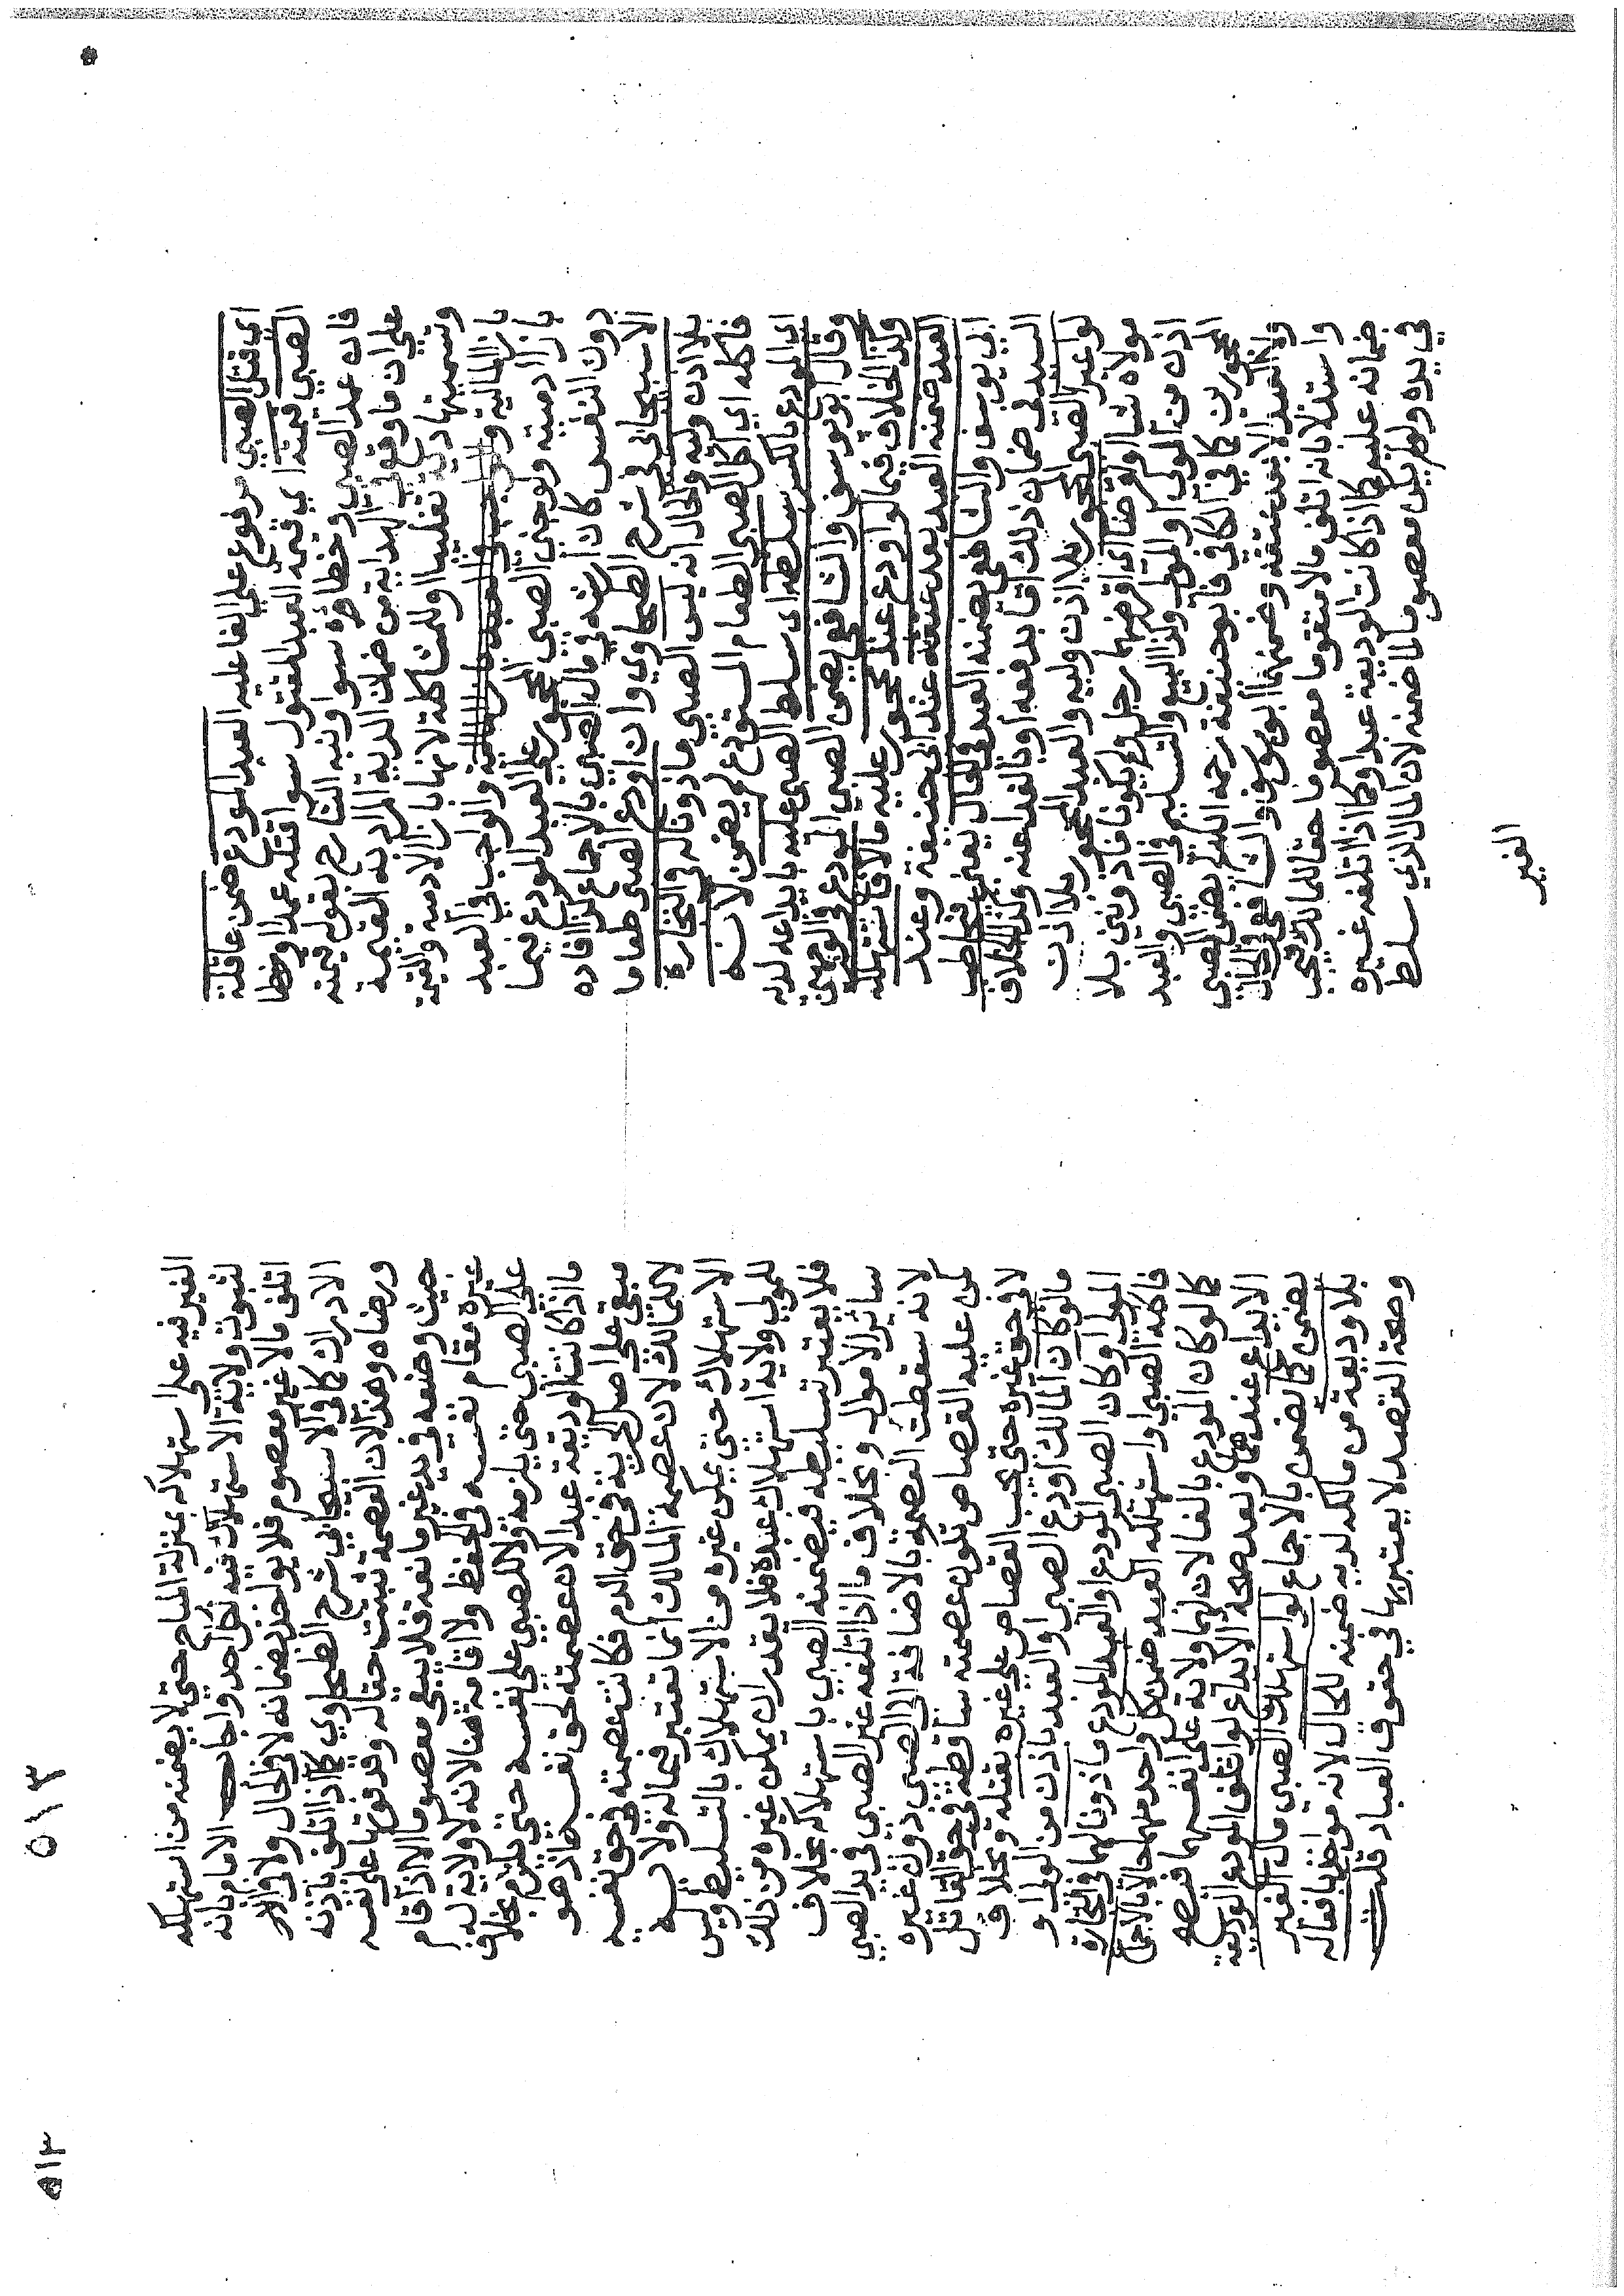 اي قتل الصبي مرفوع علي الفاعليه العبد المودع ضمن عاقلة
الصبي قيمته اي قيمه العبد المقتول سوا قتله عمدا او خطا
فان عمد الصبي وخطاؤه سوا ونبه الشارح بقوله قيمته
علي ان ما وقع في الهداية من ضمان الدية المراد به القيمة
وتسميتها دية تغليبا او للمشاكلة لانها بازا الادمية والقيمة
بازا المالية والواجب في العبد
بازا ادميته ولو جني الصبي المحجور علي العبد المودع فيما
دون النفس كان ارشه في مال الصبي بالاجماع كذا افاده
الاسبيجابي في شرح الطحاوي وان اودع الصبي طعاما
بلا اذن وليه والحال انه ليس الصبي ماذونا له في التجارة
فاكله اي اكل الصبي الطعام المستودع لم يضمن لانه
اي المودع بالكسر سلطه اي سلط الصبي عليه بايداعه لديه
وقال ابو يوسف والشافعي يضمن الصبي المودع في الوجهين
وكذا الخلاف فيما لو اودع عند محجور عليه مالا فاستهلكه
العبد ضمنه العبد بعد عتقه عند ابي حنيفة وعند
ابي يوسف والشافعي يضمنه العبد في الحال يعني فيخاطب
السيد في ضمان ذلك اما بدفعه او بالفدا عنه وكذا الخلاف
لو اعير الصبي المحجور بلا اذن وليه والعبد المحجور بلا اذن
مولاه شيا او اقرضا اي اقرضهما رجل ولم يكونا ماذونين بلا
اذن من المولي او الولي وكذا البيع والتسليم في الصبي والعبد
المحجورين كما في الكافي فابو حنيفة رحمه الله لم يضمن الصبي
واخر العبد الا بعد عتقه وضمنهما ابو يوسف والشافعي في الحال
واستدلا بانه اتلف مالا متقوما معصوما حقا للمالك فيجب
ضمانه عليه كما اذا كانت الوديعة عبدا وكما اذا اتلفه غيره
في يده ولو لم يكن معصوما لما ضمنه لان المال الذي سلط
الغير
الغير فيه علي استهلاكه بمنزلة المباح حتي لا يضمنه من استهلكه
لثبوت ولاية الاستهلاك فيه لكل احد واجاب الامام بانه
اتلف مالا غير معصوم فلا يواخذ بضمانه لا في الحال ولا في
الادراك كما في الاسبيجابي شرح الطحاوي كما اذا اتلف باذنه
ورضاه وهذا لان العصمة ثبتت حقا له وقد فوتها علي نفسه
حيث وضعه في يد غير مانعة فلا يبقي معصوما الا اذا اقام
غيره مقام نفسه في الحفظ ولا اقامة هنا لانه لا ولاية له
علي الصبي حتي يلزمه ولا للصبي علي نفسه حتي يلتزم بخلاف
ما اذا كانت الوديعة عبدا لان عصمته لحق نفسه اذ هو
مبقي علي اصل الحرية في حق الدم فكانت عصمته في حق نفسه
لا للمالك لان عصمة المالك انما تعتبر فيما له ولاية
الاستهلاك حتي يمكن غيره من الاستهلاك بالتسليط وليس
للمولي ولاية استهلاك عبده فلا يقدر ان يمكن غيره من ذلك
فلا يعتبر تسليطه فيضمنه الصبي باستهلاكه بخلاف
سائر الاموال وبخلاف ما اذا اتلفه غير الصبي في يد الصبي
لانه سقطت العصمة بالاضافة الي الصبي دون غيره
كمن عليه القصاص تكون عصمته ساقطة في حق القاتل
لا في حق غيره حتي يجب القصاص علي غيره بقتله وبخلاف
ما لو كان المالك اودع الصبي او العبد باذن من الولي او
المولي او كان الصبي المودع او العبد المودع ماذونا لهما في التجارة
فاكله الصبي او استهلكه العبد ضمن كل واحد منهما حالا بالاجماع
كما لو كان المودع بالغا لان لهما ولاية علي انفسهما فيصح
الايداع عندهما وبعد صحة الايداع لو اتلف المودع الوديعة
يضمن كما يضمن بالاجماع لو استهلك الصبي مال الغير
بلا وديعة من مالكه لديه ضمنه للحال لانه مواخذ بافعاله
وصحة القصد لا يعتبر بها في حقوق العباد قلت
٥١٣
٥١٣